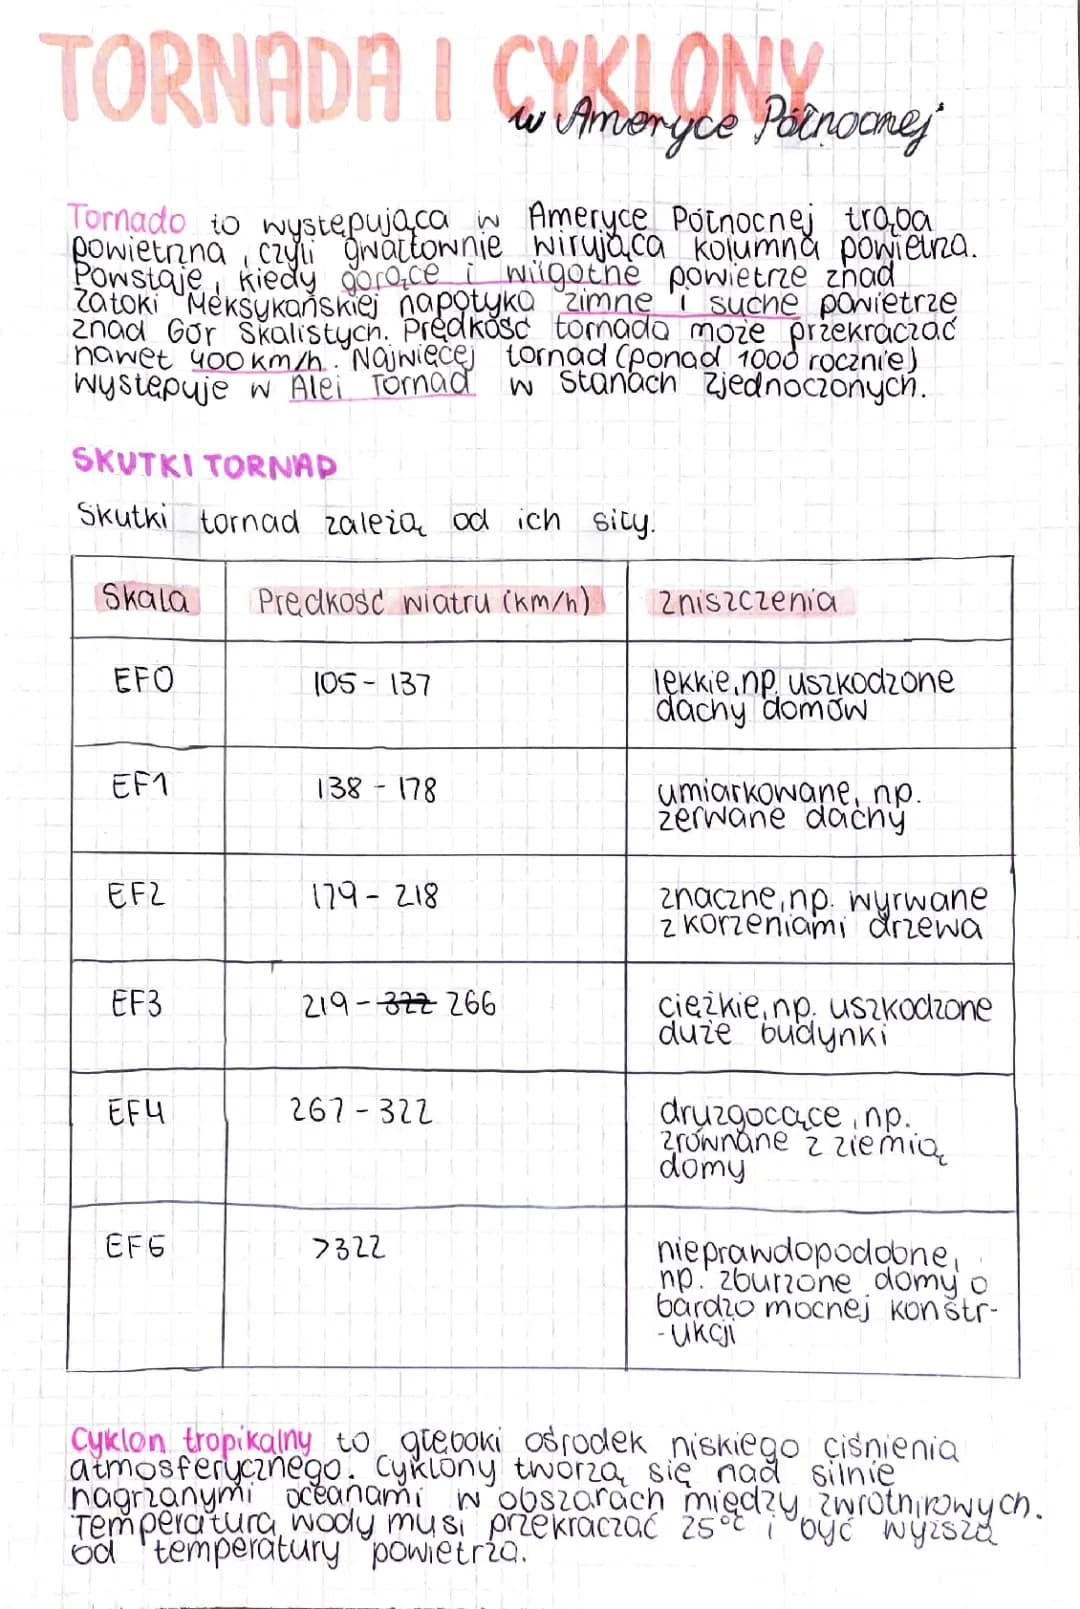 TORNADA I CYKLONY
w Ameryce Północnej
Tornado to występująca w Ameryce Północnej trąba
powietrzna, czyli gwałtownie wirująca kolumna powietrza.
Powstaje, kiedy gorące i wilgotne powietrze znad
Zatoki Meksykańskiej napotyka zimne i suche powietrze
znad Gór Skalistych. Prędkość tornada może przekraczać
nawet 400 km/h. Najwięcej tornad (ponad 1000 rocznie)
występuje w Alei Tornad w Stanach Zjednoczonych.
SKUTKI TORNAD
Skutki tornad zależą od ich siły.
Skala Prędkość wiatru (km/h) zniszczenia
EF0 105 - 137 lekkie, np. uszkodzone
dachy domów
EF1 138 - 178 umiarkowane, np.
zerwane dachy
EF2 179 - 218 znaczne, np. wyrwane
z korzeniami drzewa
EF3 219 - 322 266 ciężkie, np. uszkodzone
duże budynki
EF4 267 - 322 druzgocące, np.
zrównane z ziemią
domy
EF6 >322 nieprawdopodobne,
np. zburzone domy o
bardzo mocnej konstr-
-ukcji
Cyklon tropikalny to głęboki ośrodek niskiego ciśnienia
atmosferycznego. Cyklony tworzą się nad silnie
nagrzanymi oceanami w obszarach między zwrotnikowych.
Temperatura wody musi przekraczać 25°C i być wyższa
od temperatury powietrza.